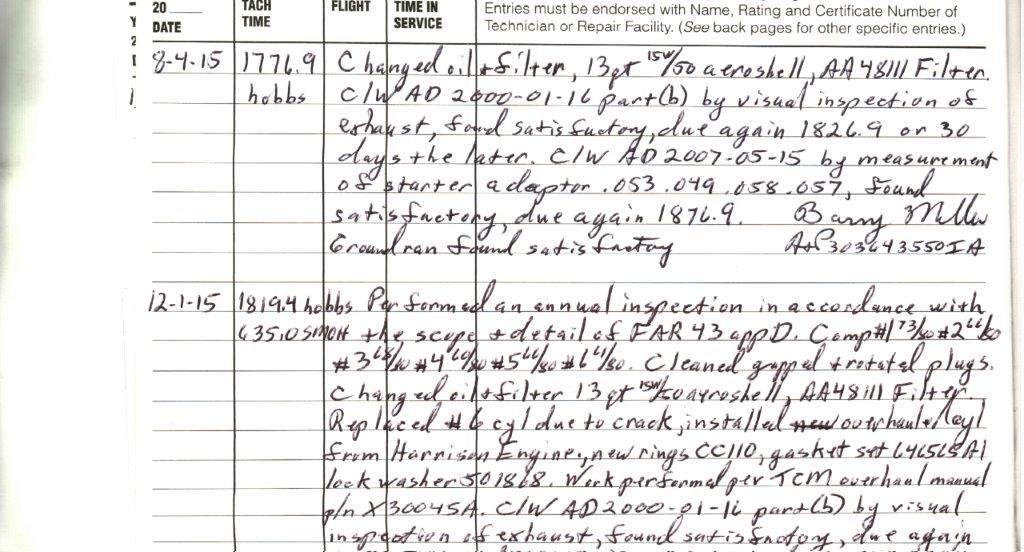 20
DATE
TACH
TIME
FLIGHT
TIME IN
SERVICE
Entries must be endorsed with Name, Rating and Certificate Number of
Technician or Repair Facility. (See back pages for other specific entries.)
8-4-15 1776.9 Changed oil + filter, 13qt 15W/50 aeroshell, AA48111 Filter.
hobbs C/W AD 2000-01-16 part(b) by visual inspection of
exhaust, found satisfactory, due again 1826.9 or 30
days the later. C/W AD 2007-05-15 by measurement
of starter adaptor .053 .049 .058 .057, found
satisfactory, due again 1876.9. Barry
Ground ran found satisfactory A+P303643550IA
12-1-15 1819.4 hobbs Performed an annual inspection in accordance with
635.0 SMOH the scope + detail of FAR 43 app D. Comp #1 73/80 #2 66/80
#3 68/80 #4 60/80 #5 66/80 #6 61/80. Cleaned gapped + rotated plugs.
Changed oil + filter 13 qt 15W/50 aeroshell, AA48111 Filter.
Replaced #6 cyl due to crack, installed new overhauled cyl
from Harrison Engine, new rings CC110, gasket set
lock washer 501868. Work performed per TCM overhaul manual
p/n X30045A. C/W AD 2000-01-16 part(b) by visual
inspection of exhaust, found satisfactory, due again